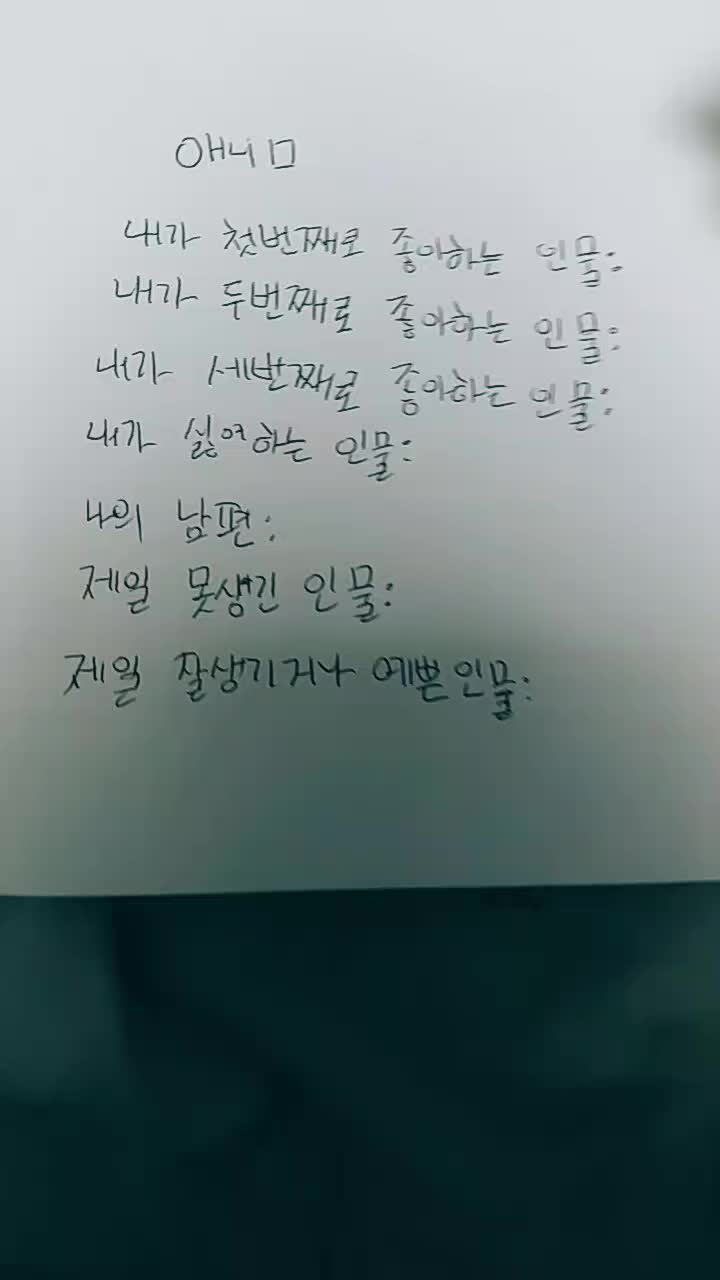 애니ㅁ
내가 첫번째로 좋아하는 인물:
내가 두번째로 좋아하는 인물:
내가 세번째로 좋아하는 인물:
내가 싫어하는 인물:
나의 남편:
제일 못생긴 인물:
제일 잘생기거나 예쁜인물: